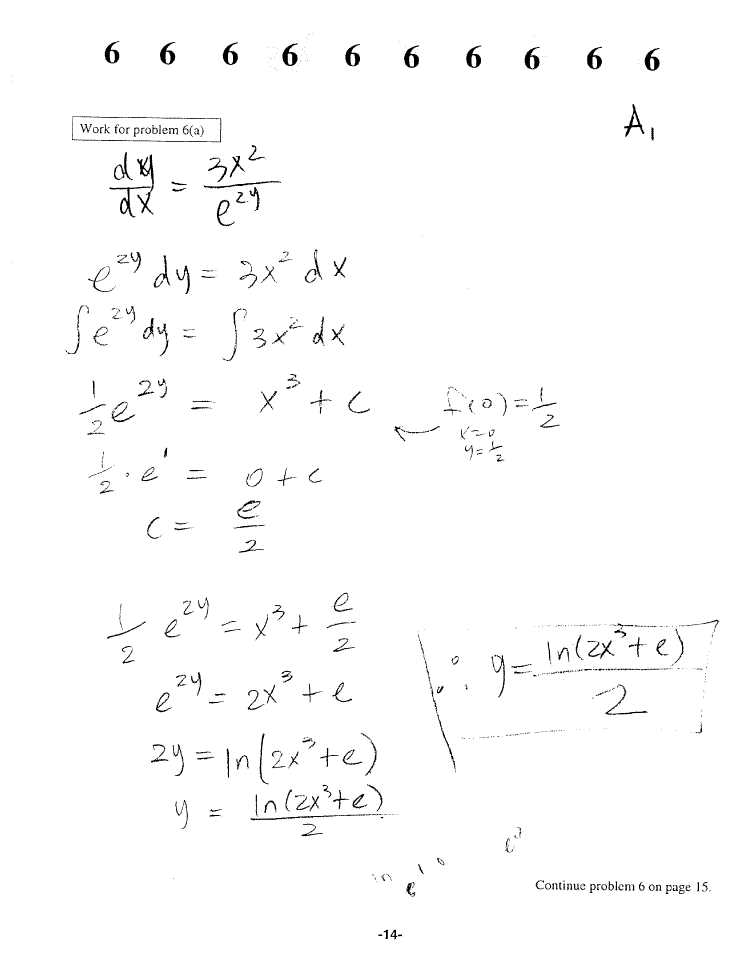 6 6 6 6 6 6 6 6 6 6
Work for problem 6(a)
A₁
dy/dx = 3x²/e^(2y)
e^(2y) dy = 3x² dx
∫e^(2y) dy = ∫3x² dx
1/2 e^(2y) = x³ + c
f(0) = 1/2
x=0
y=1/2
1/2 · e¹ = 0 + c
c = e/2
1/2 e^(2y) = x³ + e/2
e^(2y) = 2x³ + e
2y = ln(2x³+e)
y = ln(2x³+e)/2
∴ y = ln(2x³+e)/2
Continue problem 6 on page 15.
-14-